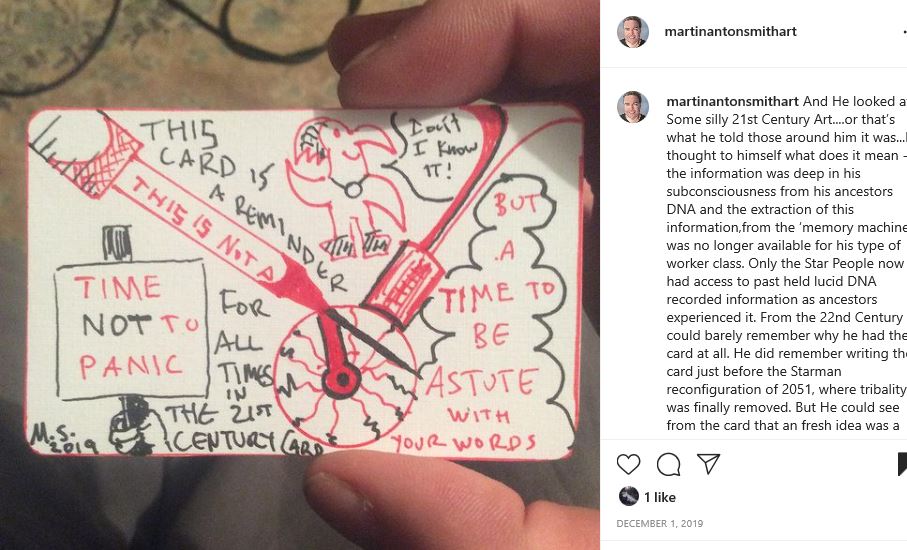 THIS
CARD IS
A REMINDER
FOR
ALL
TIMES
IN
THE 21ST
CENTURY CARD
THIS IS NOT A
I DON'T
I KNOW
IT!
TIME
NOT TO
PANIC
BUT
A
TIME TO
BE
ASTUTE
WITH
YOUR WORDS
M.S.
2019
martinantonsmithart
martinantonsmithart And He looked at
Some silly 21st Century Art....or that's
what he told those around him it was...
thought to himself what does it mean -
the information was deep in his
subconsciousness from his ancestors
DNA and the extraction of this
information,from the 'memory machine
was no longer available for his type of
worker class. Only the Star People now
had access to past held lucid DNA
recorded information as ancestors
experienced it. From the 22nd Century
could barely remember why he had the
card at all. He did remember writing the
card just before the Starman
reconfiguration of 2051, where tribality
was finally removed. But He could see
from the card that an fresh idea was a
1 like
DECEMBER 1, 2019